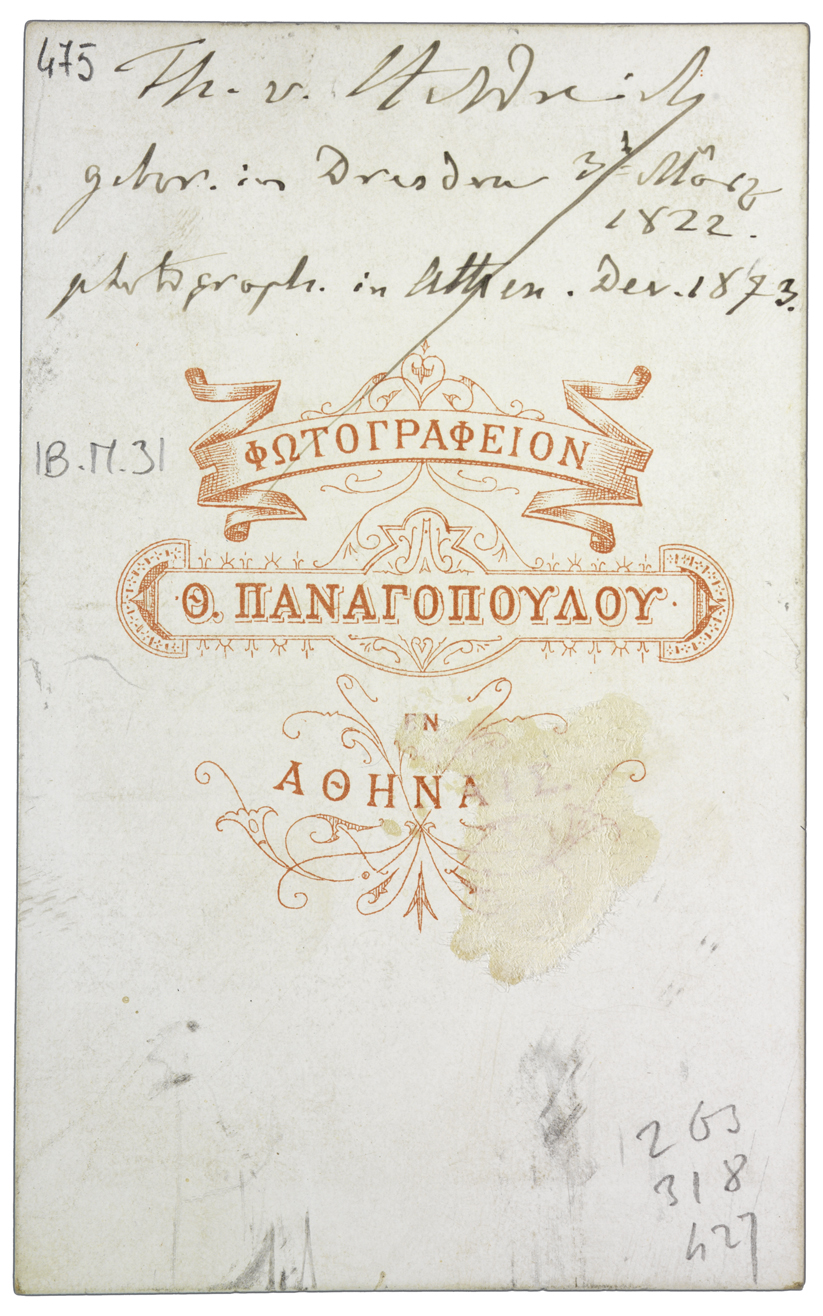 475
Th. v. Heldreich
gebor. in Dresden 3t März
1822.
photograph. in Athen. Dec. 1873.
ΦΩΤΟΓΡΑΦΕΙΟΝ
1B.M.31
Θ. ΠΑΝΑΓΟΠΟΥΛΟΥ
ΕΝ
ΑΘΗΝΑΙΣ.
263
318
427